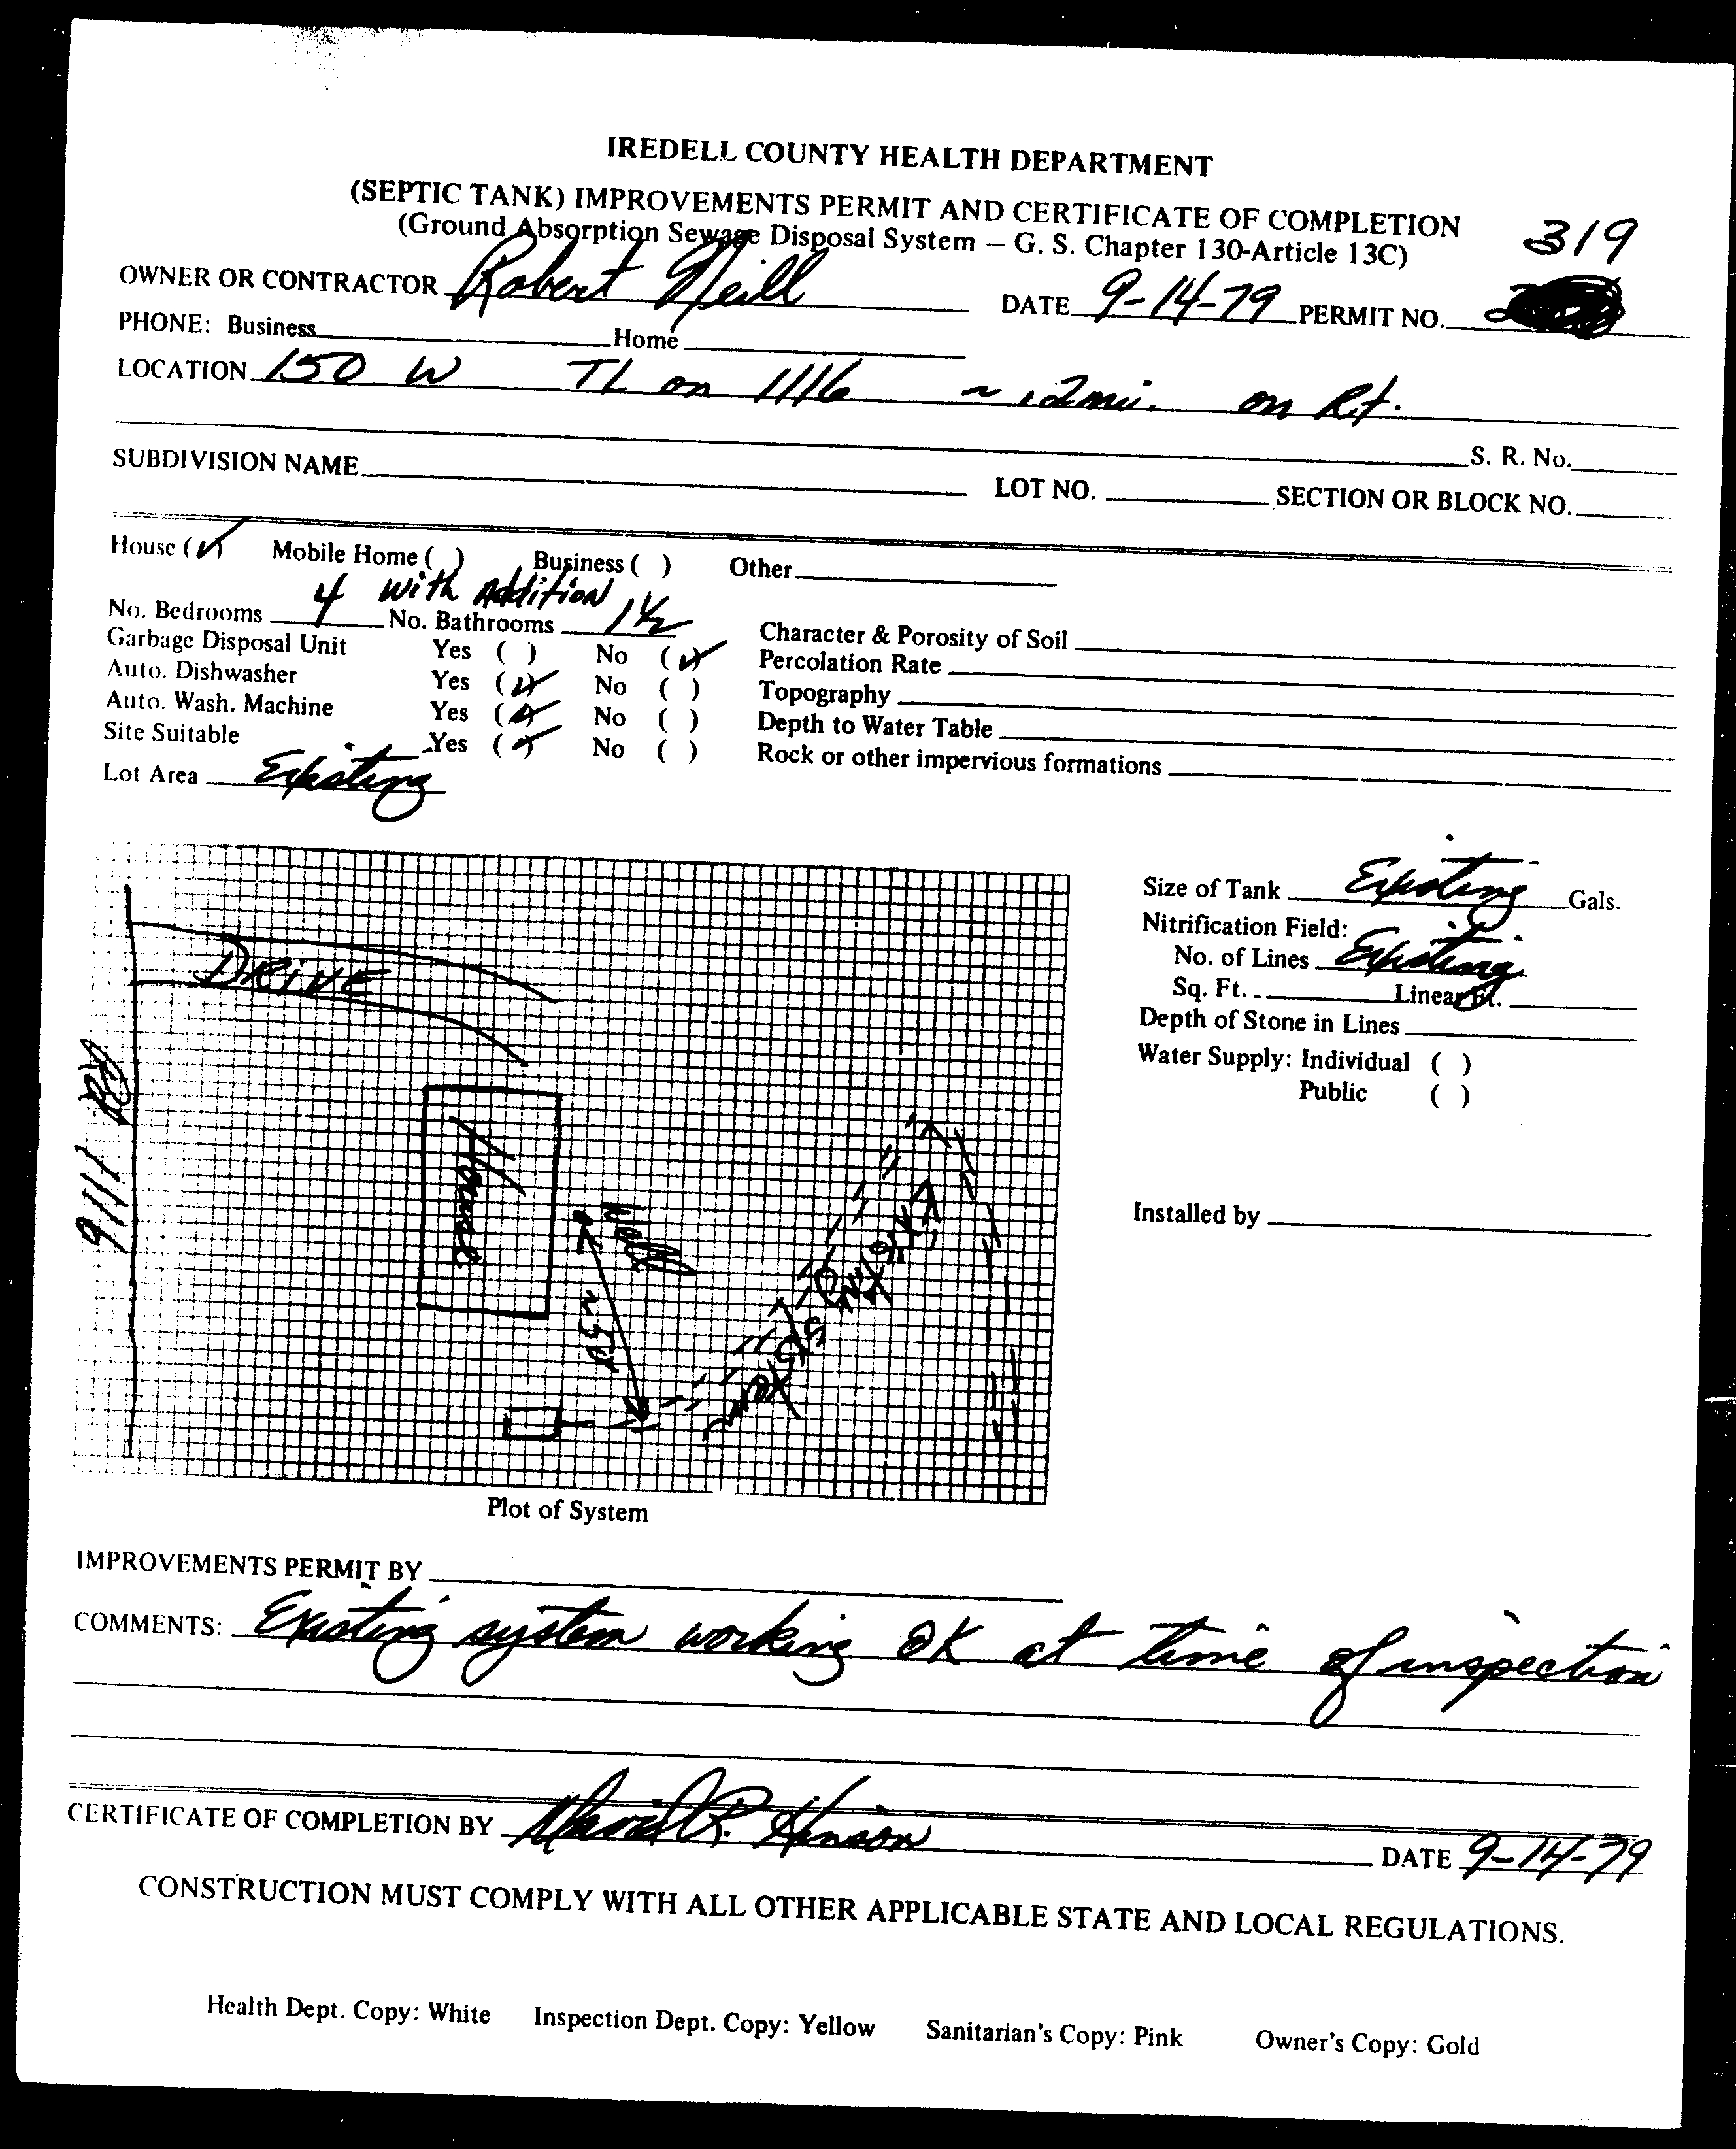 IREDELL COUNTY HEALTH DEPARTMENT
(SEPTIC TANK) IMPROVEMENTS PERMIT AND CERTIFICATE OF COMPLETION
(Ground Absorption Sewage Disposal System – G. S. Chapter 130-Article 13C)
319
OWNER OR CONTRACTOR Robert Neill DATE 9-14-79 PERMIT NO.
PHONE: Business Home
LOCATION 150 W TL on 1116 ~ .2mi. on Rt.
S. R. No.
SUBDIVISION NAME LOT NO. SECTION OR BLOCK NO.
House (✓) Mobile Home ( ) Business ( ) Other
4 with Addition
No. Bedrooms No. Bathrooms 1½ Character & Porosity of Soil
Garbage Disposal Unit Yes ( ) No (✓) Percolation Rate
Auto. Dishwasher Yes (✓) No ( ) Topography
Auto. Wash. Machine Yes (✓) No ( ) Depth to Water Table
Site Suitable Yes (✓) No ( ) Rock or other impervious formations
Lot Area Existing
Size of Tank Existing Gals.
Nitrification Field:
No. of Lines Existing
Sq. Ft. Linear Ft.
Depth of Stone in Lines
Water Supply: Individual ( )
Public ( )
Installed by
DRIVE
Rd 1116
House
Well
~50'
Existing
Plot of System
IMPROVEMENTS PERMIT BY
COMMENTS: Existing system working OK at time of inspection
CERTIFICATE OF COMPLETION BY David R. Hinson DATE 9-14-79
CONSTRUCTION MUST COMPLY WITH ALL OTHER APPLICABLE STATE AND LOCAL REGULATIONS.
Health Dept. Copy: White Inspection Dept. Copy: Yellow Sanitarian's Copy: Pink Owner's Copy: Gold